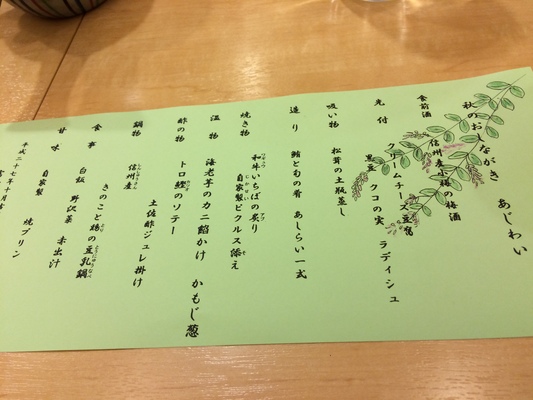 秋のおしながき あじわい
食前酒
信州産小梅の梅酒
先付
クリームチーズ豆腐
黒豆 クコの実 ラディシュ
吸い物
松茸の土瓶蒸し
造り
鮪と旬の肴 あしらい一式
焼き物
和牛いちぼの炙り
自家製ピクルス添え
温物
海老芋のカニ餡かけ かもじ葱
酢の物
トロ鰹のソテー
土佐酢ジュレ掛け
鍋物
信州産
きのこと鶏の豆乳鍋
食事
白飯 野沢菜 赤出汁
甘味
自家製 焼プリン
平成二十七年十月